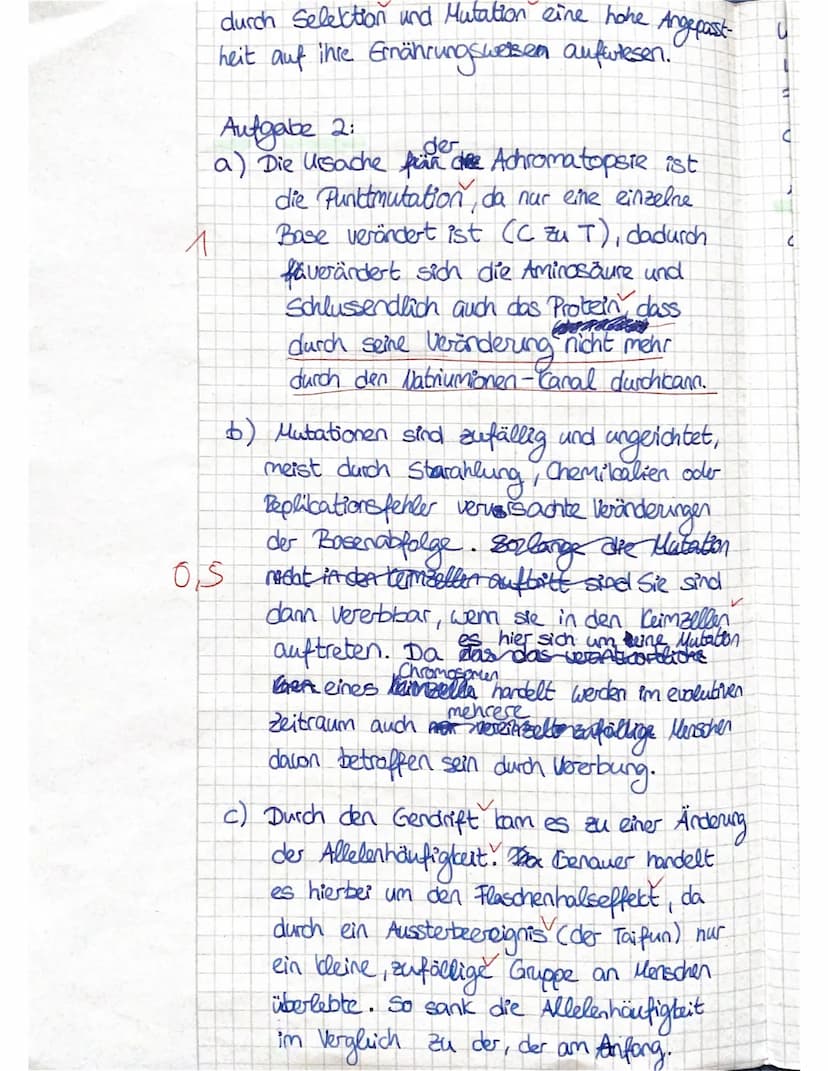 durch Selektion und Mutation eine hohe Angepasst-
heit auf ihre Ernährungsweisen aufwiesen.
Aufgabe 2:
a) Die Ursache der Achromatopsie ist
die Punktmutation, da nur eine einzelne
Base verändert ist (C zu T), dadurch
verändert sich die Aminosäure und
Schlusendlich auch das Protein, dass
durch seine Veränderung nicht mehr
durch den Natriumionen-Kanal durchkann.
1
b) Mutationen sind zufällig und ungerichtet,
meist durch Starahlung, Chemikalien oder
Replikationsfehler verursachte Veränderungen
der Basenabfolge. Solange die Mutation
nicht in den Keimzellen auftritt sind Sie sind
0,5
dann vererbbar, wenn sie in den Keimzellen
auftreten. Da es hier sich um eine Mutation
eines Chromosomen handelt werden im evolutiven
Zeitraum auch mehrere zufällige Menschen
davon betroffen sein durch Vererbung.
c) Durch den Gendrift kam es zu einer Änderung
der Allelenhäufigkeit. Genauer handelt
es hierbei um den Flaschenhalseffekt, da
durch ein Aussterbeereignis (der Taifun) nur
ein kleine, zufällige Gruppe an Menschen
überlebte. So sank die Allelenhäufigkeit
im Vergleich zu der, der am Anfang.